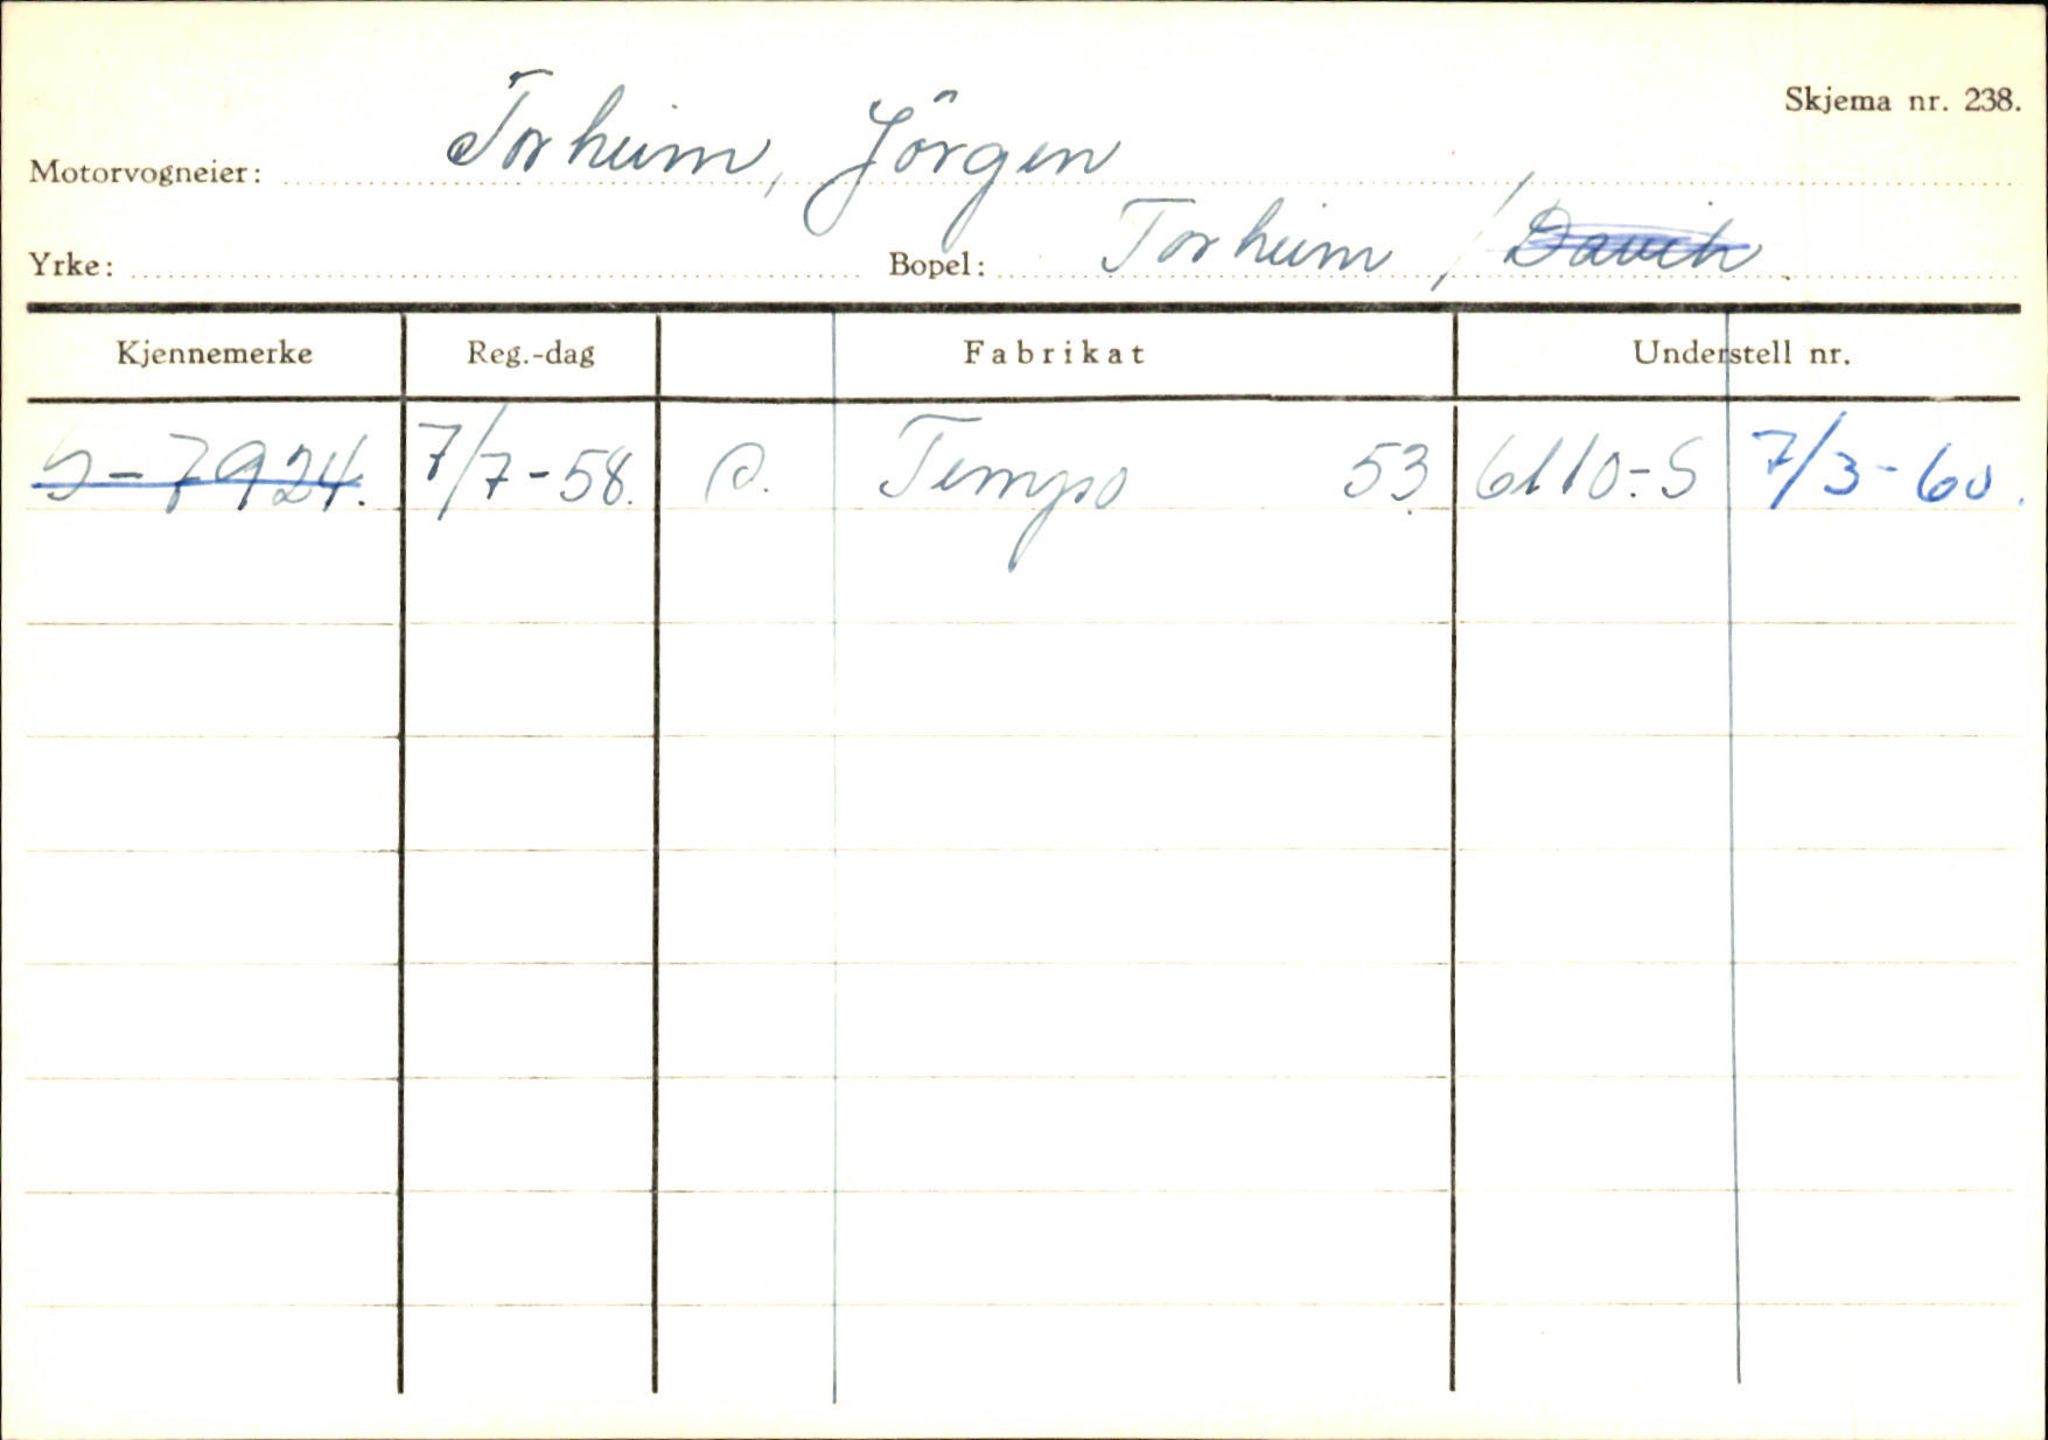 Skjema nr. 238.
Motorvogneier: Torheim, Jörgen
Yrke: Bopel: Torheim / Davik.
Kjennemerke Reg.-dag Fabrikat Understell nr.
S-7924. 7/7-58. Tempo 53. 6110.-S 7/3-60.